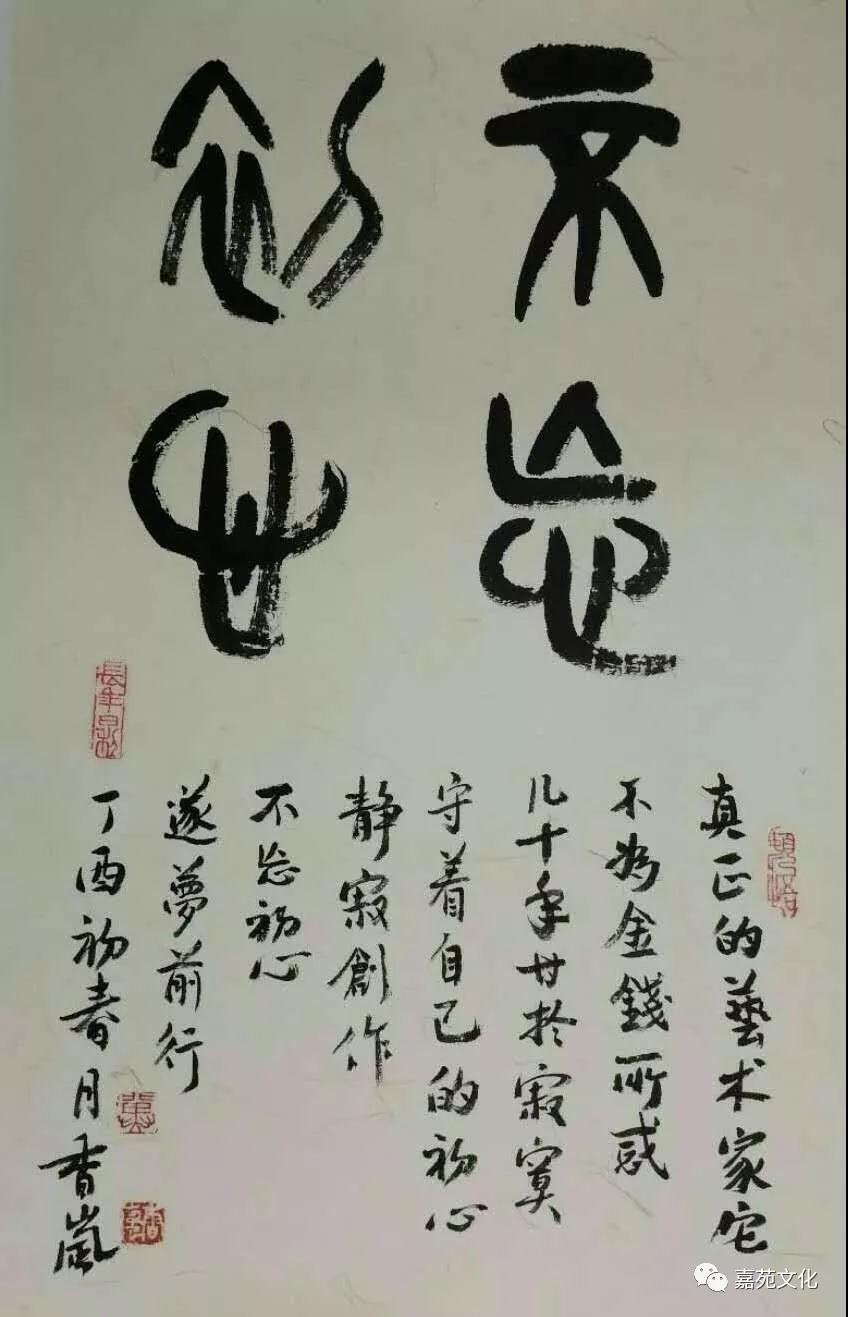 不忘
初心
真正的藝术家它
不为金錢所惑
几十年甘於寂寞
守着自己的初心
静寂創作
不忘初心
逐夢前行
丁酉初春月香嵐
嘉苑文化